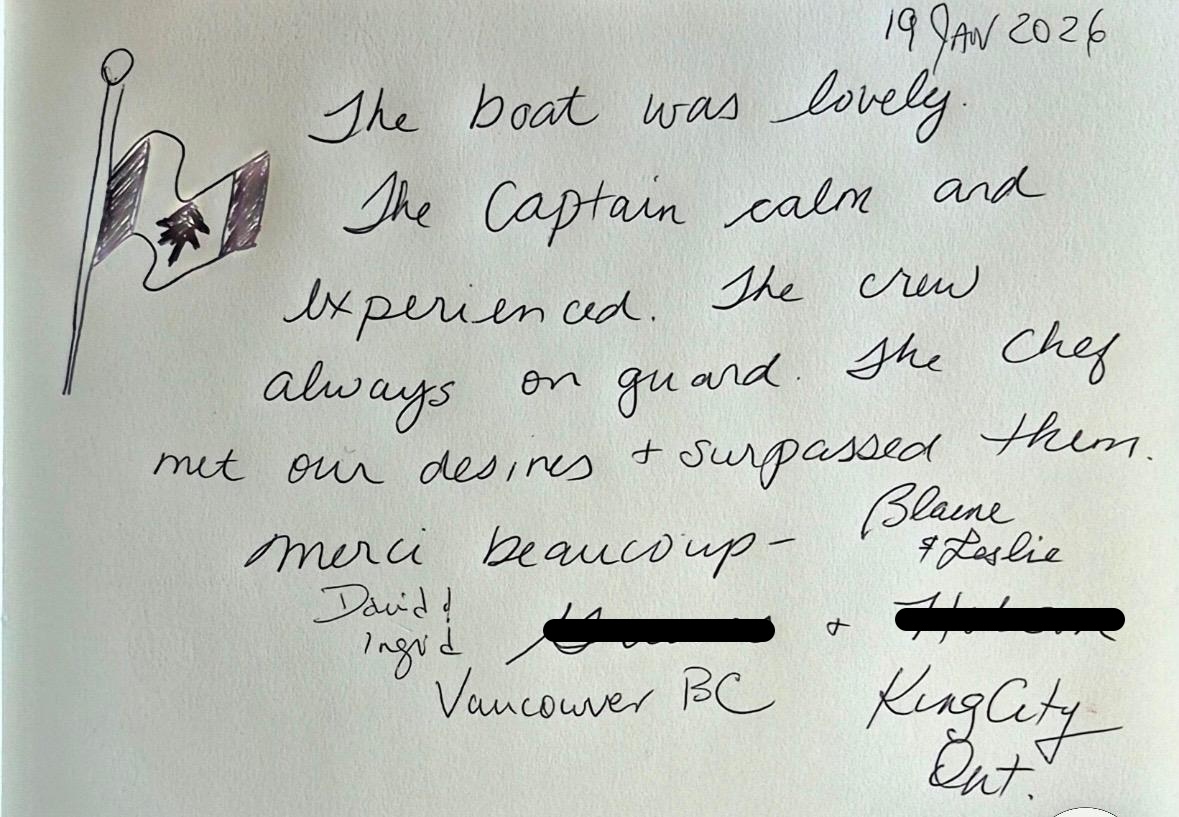 19 JAN 2026
The boat was lovely.
The Captain calm and
experienced. The crew
always on guard. The Chef
met our desires + surpassed them.
merci beaucoup -
Blaine
& Leslie
David &
Ingrid
+
Vancouver BC
King City
Ont.